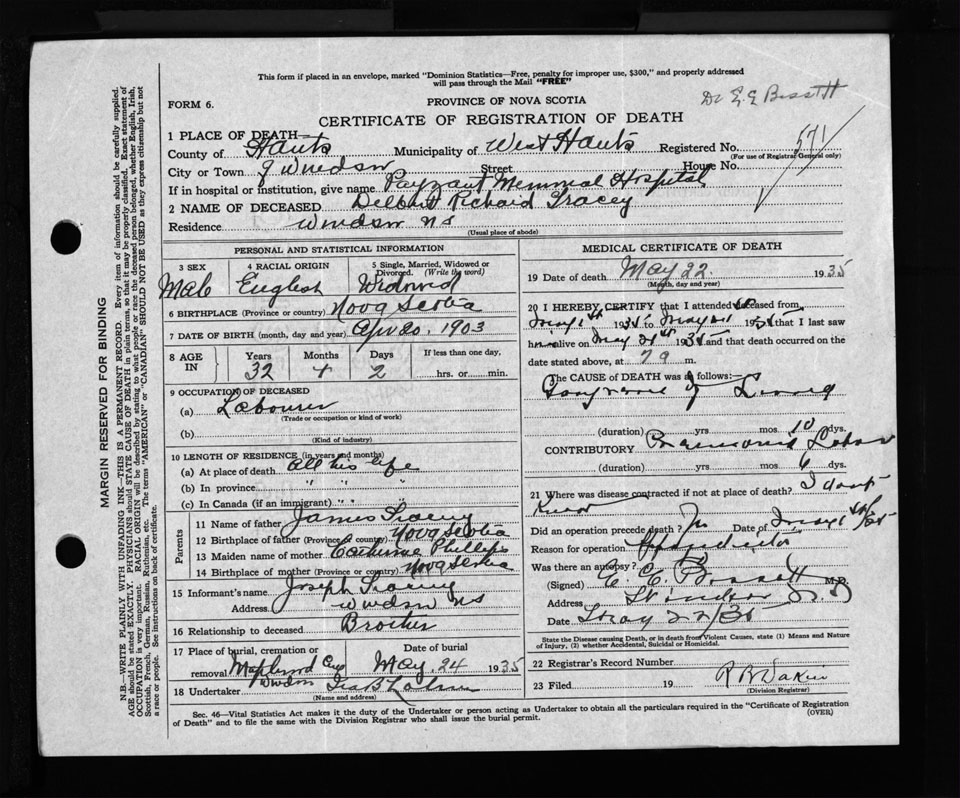 This form if placed in an envelope, marked "Dominion Statistics—Free, penalty for improper use, $300," and properly addressed
will pass through the Mail "FREE"
Dr E. E Bissett
FORM 6.
PROVINCE OF NOVA SCOTIA
CERTIFICATE OF REGISTRATION OF DEATH
571
1 PLACE OF DEATH—
County of Hants Municipality of West Hants Registered No.
(For use of Registrar General only)
City or Town of Windsor Street House No.
If in hospital or institution, give name Payzant Memorial Hospital
2 NAME OF DECEASED Delbert Richard Tracey
Residence Windsor NS
(Usual place of abode)
PERSONAL AND STATISTICAL INFORMATION
3 SEX
Male
4 RACIAL ORIGIN
English
5 Single, Married, Widowed or
Divorced. (Write the word)
Widowed
6 BIRTHPLACE (Province or country) Nova Scotia
7 DATE OF BIRTH (month, day and year) Apr 20, 1903
8 AGE
IN
Years Months Days If less than one day,
32 2 hrs. or min.
9 OCCUPATION OF DECEASED
(a) Labourer
(Trade or occupation or kind of work)
(b)
(Kind of industry)
10 LENGTH OF RESIDENCE (in years and months)
(a) At place of death all his life
(b) In province " " "
(c) In Canada (if an immigrant) " " "
Parents
11 Name of father James Tracey
12 Birthplace of father (Province or country) Nova Scotia
13 Maiden name of mother Catherine Phillips
14 Birthplace of mother (Province or country) Nova Scotia
15 Informant's name Joseph Tracey
Address Windsor NS
16 Relationship to deceased Brother
17 Place of burial, cremation or
removal Maplewood Windsor
Date of burial
May 24 1935
18 Undertaker
(Name and address)
MEDICAL CERTIFICATE OF DEATH
19 Date of death May 22 1935
(Month, day and year)
20 I HEREBY CERTIFY that I attended deceased from
May 1st 1935 to May 21st 1935 that I last saw
him alive on May 21st 1935 and that death occurred on the
date stated above, at 7 a m.
The CAUSE OF DEATH was as follows:—
Gangrene of Lung
(duration) yrs mos. 10 dys.
CONTRIBUTORY Pneumonia Lobar
(duration) yrs mos. 6 dys.
21 Where was disease contracted if not at place of death? I don't
know
Did an operation precede death? Date of May 1st/35
Reason for operation
Was there an autopsy?
(Signed) E. E. Bissett M.D.
Address Windsor N.S
Date May 22/35
State the Disease causing Death, or in death from Violent Causes, state (1) Means and Nature
of Injury, (2) whether Accidental, Suicidal or Homicidal.
22 Registrar's Record Number
23 Filed 19
(Division Registrar)
Sec. 46—Vital Statistics Act makes it the duty of the Undertaker or person acting as Undertaker to obtain all the particulars required in the "Certificate of Registration
of Death" and to file the same with the Division Registrar who shall issue the burial permit.
(OVER)
MARGIN RESERVED FOR BINDING
N.B.—WRITE PLAINLY WITH UNFADING INK—THIS IS A PERMANENT RECORD. Every item of information should be carefully supplied.
AGE should be stated EXACTLY. PHYSICIANS should STATE CAUSE OF DEATH in plain terms, so that it may be properly classified. Exact statement of
OCCUPATION is very important. RACIAL ORIGIN will be described by stating to what people or race the deceased person belonged, whether English, Irish,
Scottish, French, German, Russian, Ruthenian, etc. The terms "AMERICAN" or "CANADIAN" SHOULD NOT BE USED as they express citizenship but not
a race or people. See instructions on back of certificate.